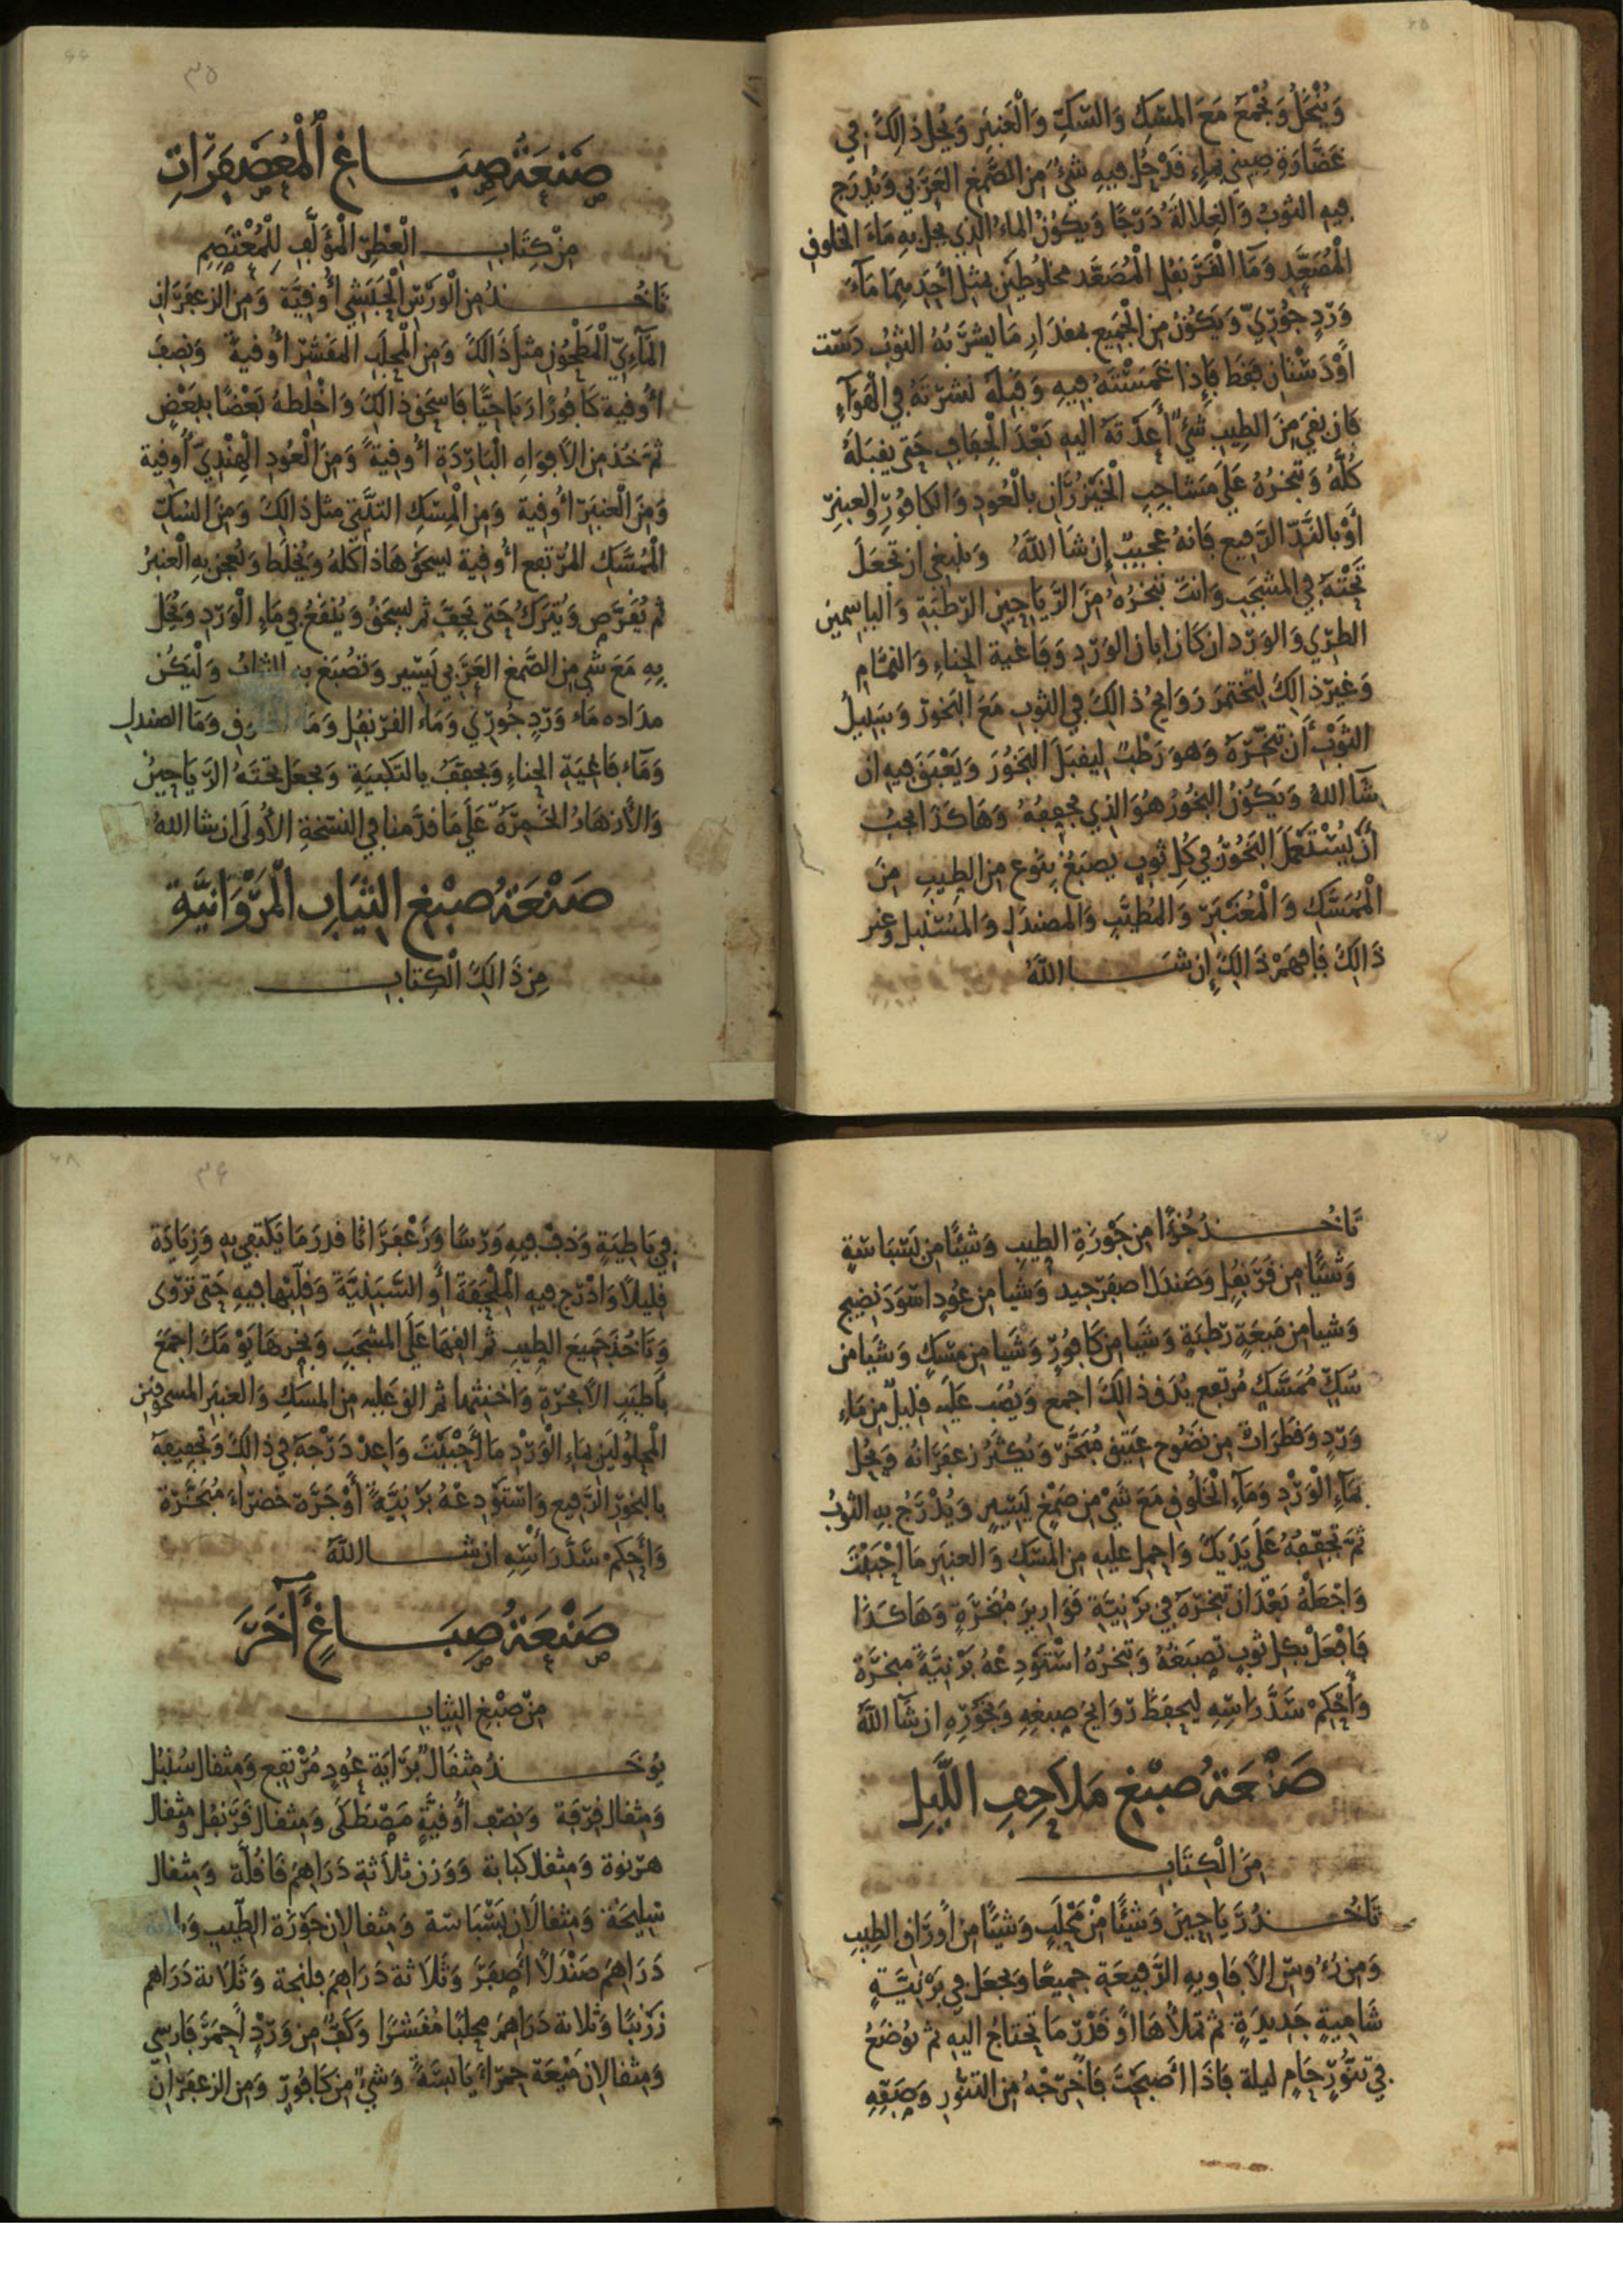 ٤٥
وَيُنْخَلُ وَيُجْمَعُ مَعَ المِسْكِ وَالسُّكِّ وَالْعَنبَرِ وَيُحل ذَالِكَ فِي
غَضَّارَةِ صِينِي بِمَاءٍ قَدْ حُل فِيهِ شَيْءٌ مِنَ الصَّمْغِ العَرَبِي وَيُدْرَج
فِيهِ الثوبُ وَالغِلالَةُ دَرْجًا وَيَكُونُ المَاءُ الَّذِي يحل بِهِ مَاءَ الخلوق
الْمُصَعَّدِ وَمَا الْقَرَنفُلِ الْمُصَعَّدِ مخلوطَيْن بمثل أَحَدِهِمَا مَاءَ
وَرْدٍ جُورِيٍّ وَيَكُونُ مِنَ الْجَمِيعِ بمقدَارِ مَا يشرَبُهُ الثوبُ دَسْت
أَوْ دَسْتَان فَقَط فَإِذَا غَمَسْتَهُ فِيهِ وَقَبِلَهُ نَشَرْتَهُ فِي الْهَوَآءِ
فَان بَقِيَ مِنَ الطِيبِ شَيْءٌ أَعَدْتَهُ اليهِ بَعْدَ الْجَفَافِ حَتى يقبَلَهُ
كُلَّهُ وَتبخرُهُ عَلَى مَشَاجِبِ الْخَيْزُرَانِ بالْعُودِ وَالكَافُورِ والعنبرِ
أَوْ بالنَّدِّ الرَّفِيعِ فَانهُ عَجِيبٌ إِنْ شَا اللَّهُ وَينبغِي ان تَجْعَلَ
تَحْتَهُ فِي المشْجَبِ وَانتَ تبَخرُهُ مِنَ الرَّيَاحِينِ الرَّطْبَةِ وَالياسِمِين
الطَرِي وَالوَرْدِ ان كَانَ ابان الوَرْدِ وَفَاغيةِ الْحِناءِ وَالنمَّام
وَغيْرِ ذَالِكَ لِتَختمَرَ رَوَايحُ ذَالِكَ فِي الثوبِ مَعَ الْبَخُورِ وَسَبِيلُ
الثَّوْبِ أَن تبَخِّرَهُ وَهوَ رَطْبٌ لِيقبَلَ الْبَخُورَ وَيَعْبَقَ فِيهِ ان
شَا اللهُ وَيَكُونُ البخُورُ هُوَ الذِي يُجفِّفُهُ وَهَاكَذَا يجبُ
أَنْ يُسْتَعْمَلَ الْبَخُورُ فِي كُلِّ ثوبٍ يصبَغُ بِنَوعٍ مِنَ الطِيبِ مِنَ
الْمُمَسَّكِ وَالْمُعَنبَرِ وَالمُطيَّبِ وَالمصَندَلِ وَالمُسَنبل وغير
ذَالِكَ فَافهَمْ ذَالِكَ إِن شَـــا اللَّهُ
٤٦
٣٥
صَنعَةُ صِبَـــاغِ الْمُعَصْفَرَاتِ
مِنْ كِتَابِ الْعِطْرِ الْمُؤَلَّفِ لِلْمُعْتَصِمِ
تَاخُـــذُ مِن الْوَرْسِ الْحَبَشِي أُوقِيَّة وَمِنَ الزعفَرَان
المَآءِيِّ الْمَطْحُونِ مثلَ ذَالِكَ وَمِنَ الْمحلَبِ المقَشرِ أُوقية وَنِصْفَ
أُوقيةِ كَافُورًا رَبَاحِيًّا فَاسْحَقْ ذَالِكَ وَاخْلطهُ بَعْضًا بِبَعْضٍ
ثُمَ خُذ مِنَ الأَفوَاهِ البَارِدَةِ أُوقيةً وَمِنَ الْعُودِ الْهِنْدِيِّ أُوقية
وَمِنَ الْعنبَرِ أُوقية وَمِنَ الْمِسْكِ التبَّتِي مثل ذَالِكَ وَمِنَ السُّكِّ
الْمُمَسَّكِ المُرْتفِعِ أُوقية يسحَقُ هَاذَا كلهُ وَيُخْلَطُ وَيُعجَنُ بِهِ الْعنبَرُ
ثم يُقَرَّص وَيُترَكُ حَتى يَجِفَّ ثم يسحَقُ وَيُنقَعُ فِي مَاءِ الْوَرْدِ وَيُحَل
بِهِ مَعَ شَيْءٍ مِن الصَّمْغِ العَرَبِي يَسِير وَتُصْبَغ بِهِ الثيَابُ وَلْيَكُن
مدَاده مَاء وَرْدٍ جُورِي وَمَاء القرَنفُل وَمَا الخلوق وَمَا الصندل
وَمَآء فَاغِيَةِ الحِناءِ وَيجفَّفُ بِالتكبِيَةِ وَيجعَل تحتَهُ الرَّيَاحِينُ
وَالأَزهَارُ الخَمِرَةُ عَلَى مَا قدَّمنَا فِي النسْخَةِ الأُولَى ان شا اللهُ
صَنْعَةُ صبْغِ الثيَابِ الْمَرْوَانِيَّةِ
مِن ذَالِكَ الْكِتَابِ
٤٧
تَاخُـــذُ جُزْءًا مِن جَوْزَةِ الطِيبِ وَشَيْئًا مِن بَسْبَاسَةٍ
وَشَيْئًا مِن قَرَنفُلٍ وَصَندَلًا اصفَرَ جيد وَشَيا مِن عُودٍ اسْوَدَ نَضِيج
وَشيا مِن مَيعَةٍ رَطبَةٍ وَشَيا مِن كَافُورٍ وَشَيا مِن مِسْكٍ وَشَيا مِن
سُكٍّ مُمَسَّكٍ مُرتفِع يُدَق ذَالِكَ اجمع وَيُصَب عَلَيه قَلِيلٌ مِن مَاءِ
وَرْدٍ وَقَطَرَاتٌ مِن نَضُوحٍ عَتِيقٍ مُبَخَّرٍ وَيُكَثَّرُ زعفَرَانهُ وَيُحل
بمَآءِ الْوَرْدِ وَمَآءِ الْخَلُوقِ مَعَ شَيْءٍ مِن صَمْغٍ يَسِيرٍ وَيُدْرَجُ بِهِ الثوبُ
ثمَّ تجَفِّفُهُ عَلَى يَدَيكَ وَاحمل عليهِ مِنَ المِسْكِ وَالعنبَرِ مَا أَحْبَبْتَ
وَاجْعَلْهُ بَعْدَ أَن تبخرَهُ فِي بَرْنِيَّةِ قَوَارِيرَ مُبَخَّرَةٍ وَهَاكَـذَا
فَافْعَلْ بِكل ثوبٍ تصبَغُهُ وَتبخرُهُ اسْتَوْدِعْهُ بَرْنِيَّةً مبخرَةً
وَأَحْكِمْ سَدَّ رَاسِهِ ليحفَظَ رَوَايحَ صبغِهِ وَبخُورِهِ ان شَا اللَّهُ
صَنْعَةُ صبْغِ مَلَاحِفِ اللَّيْلِ
مِنَ الْكِتَابِ
تَاخُـــذُ رَيَاحِينَ وَشَيْئًا مِنْ مَحْلَبٍ وَشَيْئًا مِن أَورَاقِ الطِيبِ
وَمِن رُءُوسِ الأَفَاوِيهِ الرَّفِيعَةِ جَمِيعًا وَيجعَل فِي بَرْنِيَّـةٍ
شَامِيةٍ جَدِيدَةٍ ثم تملأُهَا أَوْ قَدْرَ مَا تَحْتَاجُ اليهِ ثم يُوضَعُ
فِي تَنُّورٍ حَامٍ ليلة فَاذَا أَصْبَحْتَ فَأَخْرِجْهُ مِنَ التنُّورِ وَصَفِّهِ
٤٨
٣٦
فِي بَاطِيَةٍ وَدُفْ فِيهِ وَرْسًا وَزَعْفَرَانًا قدرَ مَا يَكتفِي بِهِ وَزِيَادَة
قَلِيلًا وَادْرِج فِيهِ الْمِلْحَفَةَ أَوِ السَّبَنِيَّةَ وَقَلِّبْهَا فِيهِ حَتى تَرْوَى
وَتَاخُذَ جَمِيعَ الطِيبِ ثم القِهَا عَلَى المشجَبِ وَبخرهَا يَوْمَكَ اجمَعَ
بِأَطْيَبِ الأَبْخِرَةِ ثم الق عَليه مِن المِسْكِ وَالعنبَرِ المسحوقين
الْمحلُولَين بمَاءِ الْوَرْدِ مَا أَحْبَبْتَ وَاعِدْ دَرْجَهَ فِي ذَالِكَ وَتجفِيفَهَ
بالبخُورِ الرَّفِيعِ وَاسْتَوْدِعْهُ بَرْنِيَّةً أَوْ جَرَّةً خضرَاءَ مُبَخَّرَة
وَأَحْكِمْ سَدَّ رَأْسِهِ ان شَـــا اللَّهُ
صَنْعَةُ صِبَـــاغٍ آخَرَ
مِنْ صبْغِ الثيَابِ
يُوخَـــذُ مِثقَالٌ بُرَايَة عُودٍ مُرْتفِع وَمِثقال سُنبُل
وَمِثقَال قِرْفَة وَنِصْف أُوقيَّةٍ مَصْطَكَى وَمِثقَال قَرَنفُل ومثقال
هَرْنوَة وَمِثقال كَبَابَة وَوَزن ثلَاثَة دَرَاهِمَ قَاقُلَّة وَمِثقال
سَلِيخَة وَمِثقَالَان بَسْبَاسَة وَمِثقَالَان جَوْزَة الطِّيبِ وَثلاثة
دَرَاهِمَ صَنْدَلًا أَصْفَرَ وَثَلَاثة دَرَاهِمَ فلنجة وَثَلَاثة دَرَاهِم
زَرْنَبًا وَثلَاثة دَرَاهِمَ محلبًا مُقَشَّرًا وَكَفّ مِن وَرْدٍ أَحمَرَ فَارِسِي
وَمِثقالان مَيْعَة حمرَاء يَابِسَةً وَشَيْءٌ مِن كَافُورٍ وَمِنَ الزعفَرَان